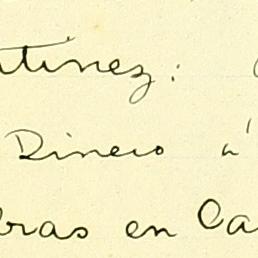 tinez:
Dinero á
bras en Ca